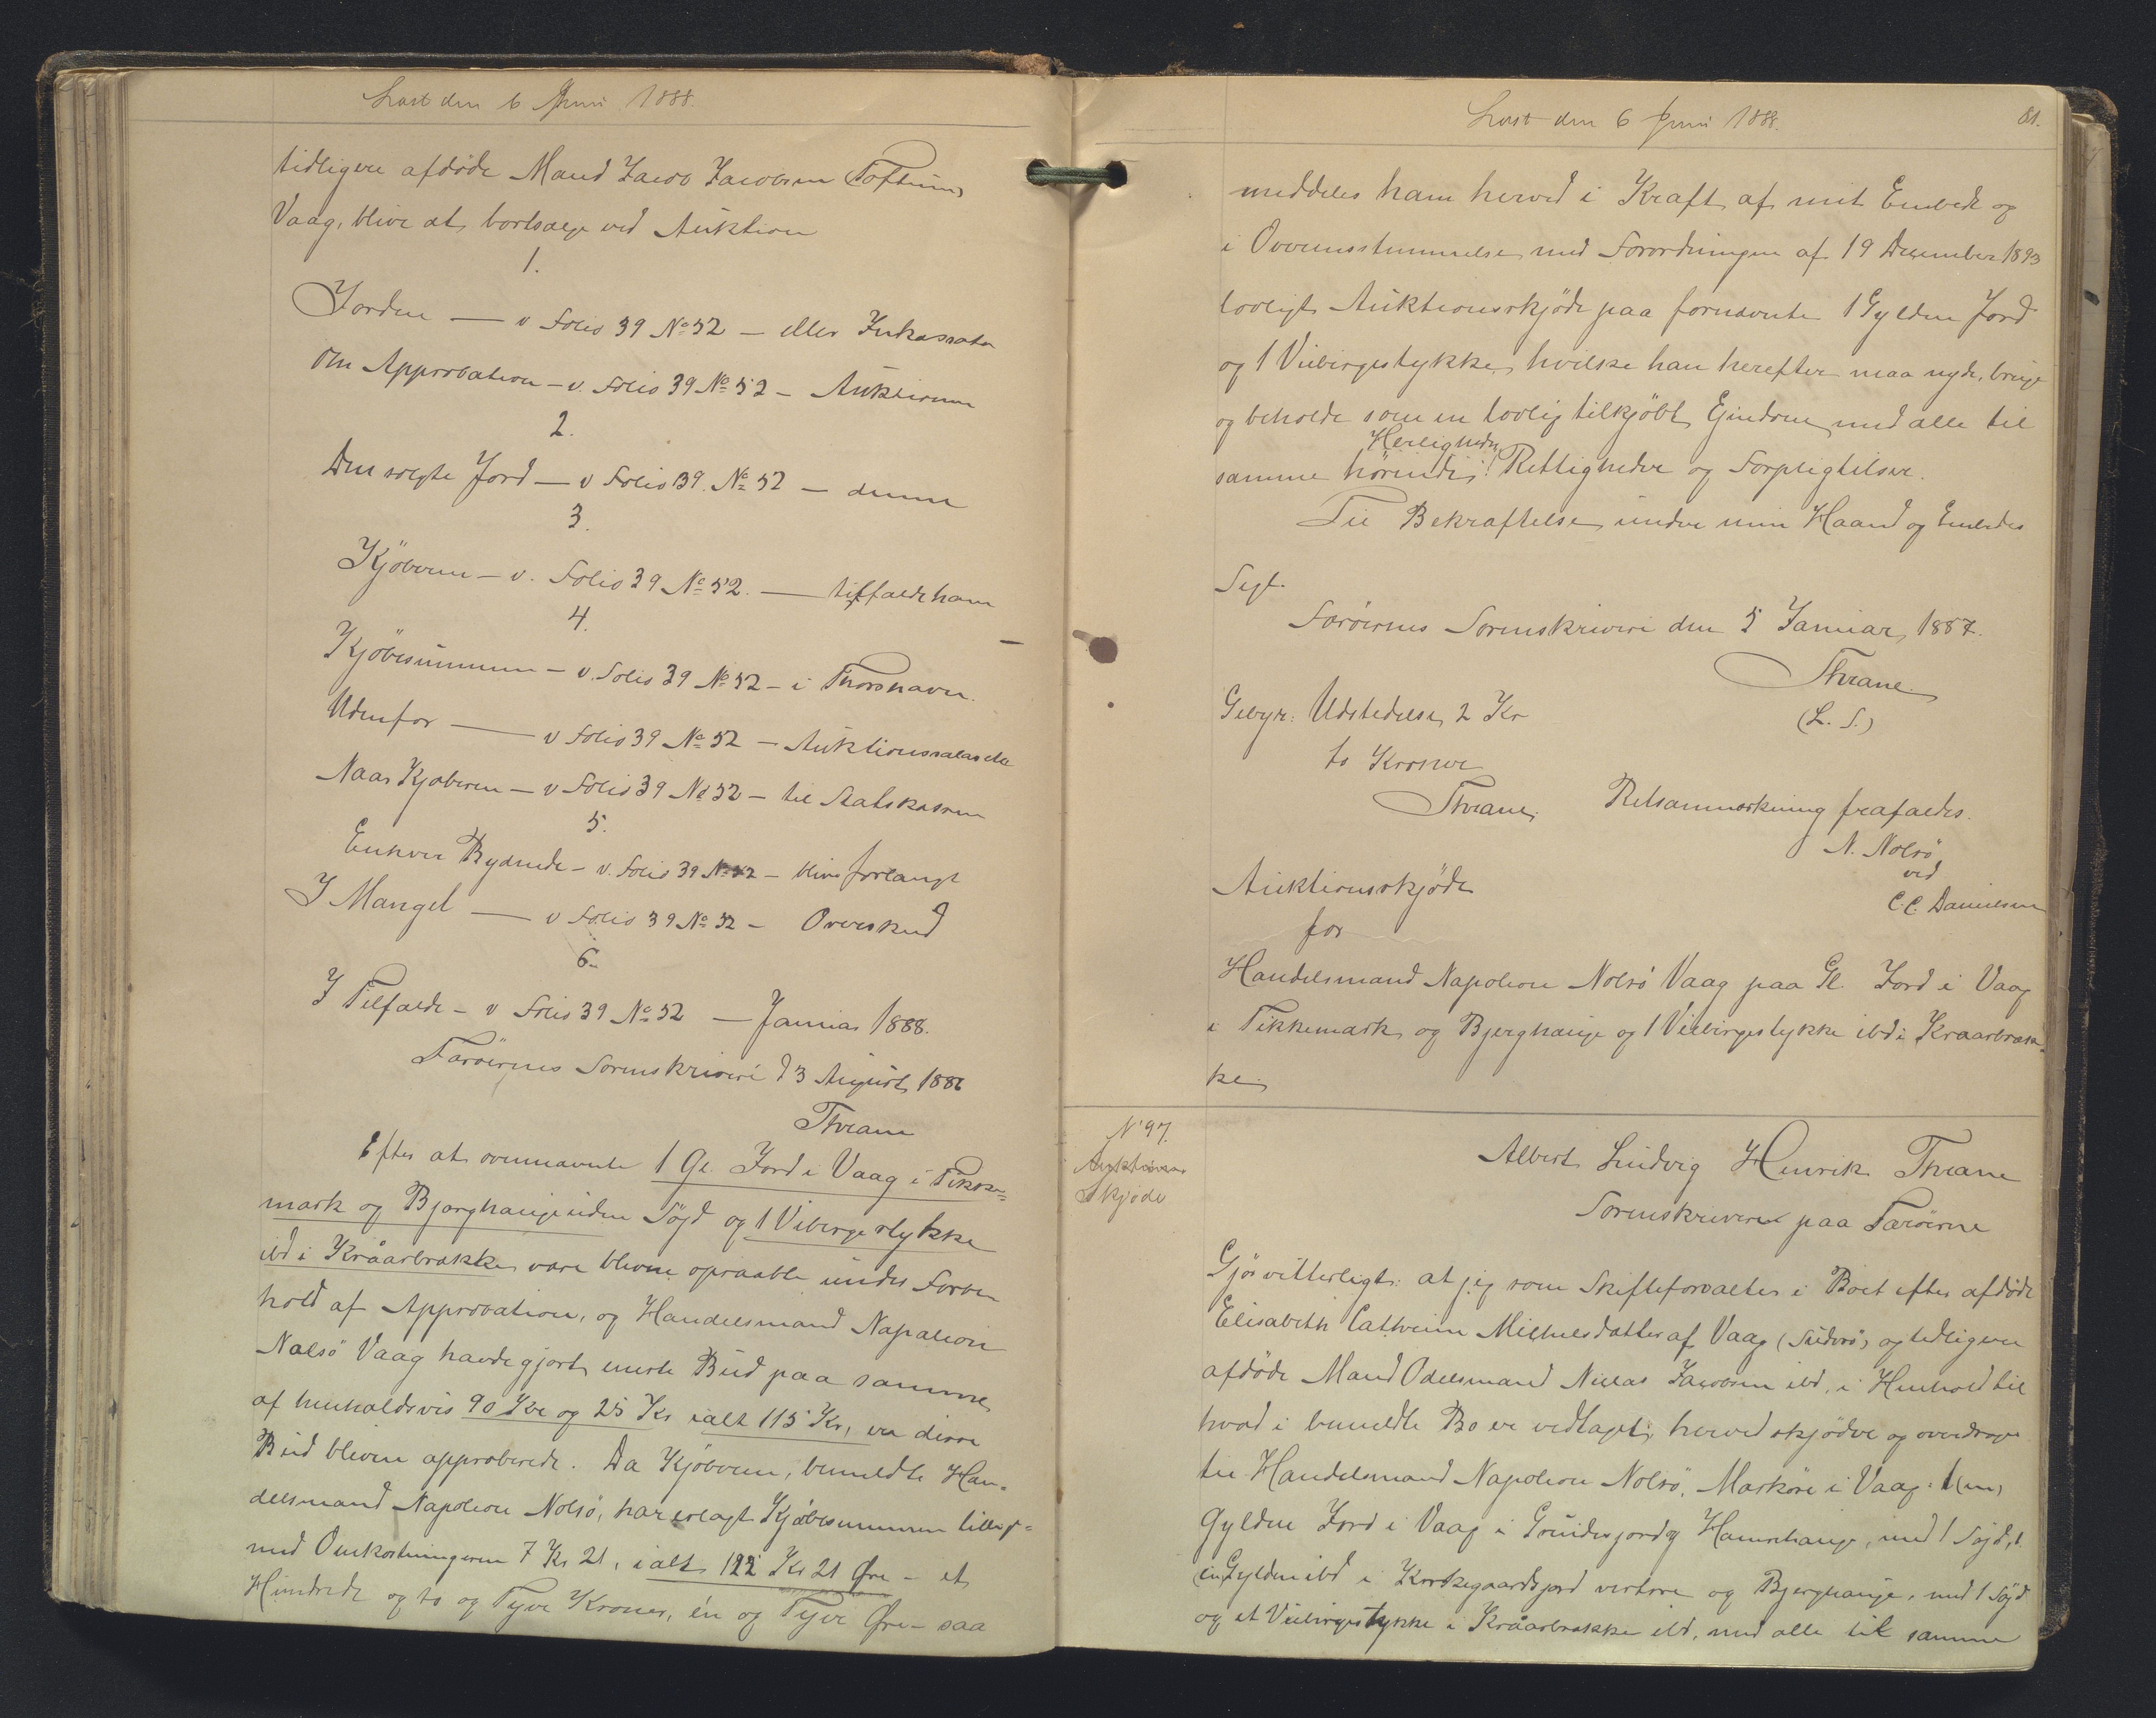 Læst den 6 Juni 1888.
tidligere afdöde Mand Jacob Jacobsen Toftum,
Vaag, blive at bortsælge ved Auktion
1.
Jorden — v Folio 39 No 52 — eller Inkassator
Om Approbation — v. Folio 39 No 52 — Auktionen
2.
Den solgte Jord — v Folio 39. No 52 — denne
3.
Kjöberen — v. Folio 39 No 52. — tilfalde ham
4.
Kjöbesummen — v. Folio 39 No 52 — i Thorshavn.
Udenfor — v Folio 39 No 52 — Auktionssalær etc
Naar Kjøberen — v Folio 39 No 52 — til Statskassen
5.
Enhver Bydende — v. Folio 39 No 52 — blive forlangt
I Mangel — v Folio 39 No 52 — Overskud
6.
I Tilfælde — v Folio 39 No 52 — Januar 1888.
Færöernes Sorenskriveri d 3 August 1886
Thrane
Efter at ovennævnte 1 Gl. Jord i Vaag i Tikke=
mark og Bjerghauge uden Söjd og 1 Vebirgestykke
ibd i Kråarbrække vare blevne opraabte under Forbe
hold af Approbation, og Handelsmand Napoleon
Nolsö Vaag havde gjort meste Bud paa samme
af henholdsvis 90 Kr og 25 Kr ialt 115 Kr, ere disse
Bud blevne approberede. Da Kjöberen, bemeldte Han=
delsmand Napoleon Nolsö, har erlagt Kjöbesummen tillige=
med Omkostningerne 7 Kr 21, ialt 122 Kr 21 Øre — et
Hundrede og to og Tyve Kroner, én og Tyve Øre — saa
Læst den 6 Juni 1888.
81.
meddeles ham herved i Kraft af mit Embede og
i Overensstemmelse med Forordningen af 19 December 1893
lovligt Auktionsskjöde paa fornævnte 1 Gylden Jord
og 1 Viebirgestykke, hvilke han herefter maa nyde, bruge
og beholde som en lovlig tilkjöbt Ejendom med alle til
Herligheder
samme hörende, Rettigheder og Forpligtelser.
Til Bekræftelse under min Haand og Embedes
Segl.
Færöernes Sorenskriveri den 5 Januar 1887.
Thrane
Gebyr: Udstedelse 2 Kr
(L. S.)
to Kroner
Thrane,
Retsanmærkning frafaldes.
N. Nolsö
ved
C. C. Danielsen
Auktionsskjöde
for
Handelsmand Napoleon Nolsö Vaag paa Gl. Jord i Vaag
i Tikkemark og Bjerghauge og 1 Viebirgestykke ibd i Kraarbræk=
ke
No 97.
Auktions
Skjöde
Albert Ludvig Henrik Thrane
Sorenskriver paa Færöerne
Gjör vitterligt: at jeg som Skifteforvalter i Boet efter afdöde
Elisabeth Cathrine Michelsdatter af Vaag (Suderö) og tidligere
afdöde Mand Odelsmand Niclas Jacobsen ibd, i Henhold til
hvad i bemeldte Bo er vedtaget, herved skjöder og overdrager
til Handelsmand Napoleon Nolsö, Marköre i Vaag: 1 (en)
Gylden Jord i Vaag i Grundesjord og Hamrehauge, med 1 Söjd, 1
(en) Gylden ibd i Kirkegaardsjord vestere og Bjerghauge, med 1 Söjd
og et Viebirgestykke i Kråarbrække ibd, med alle til samme